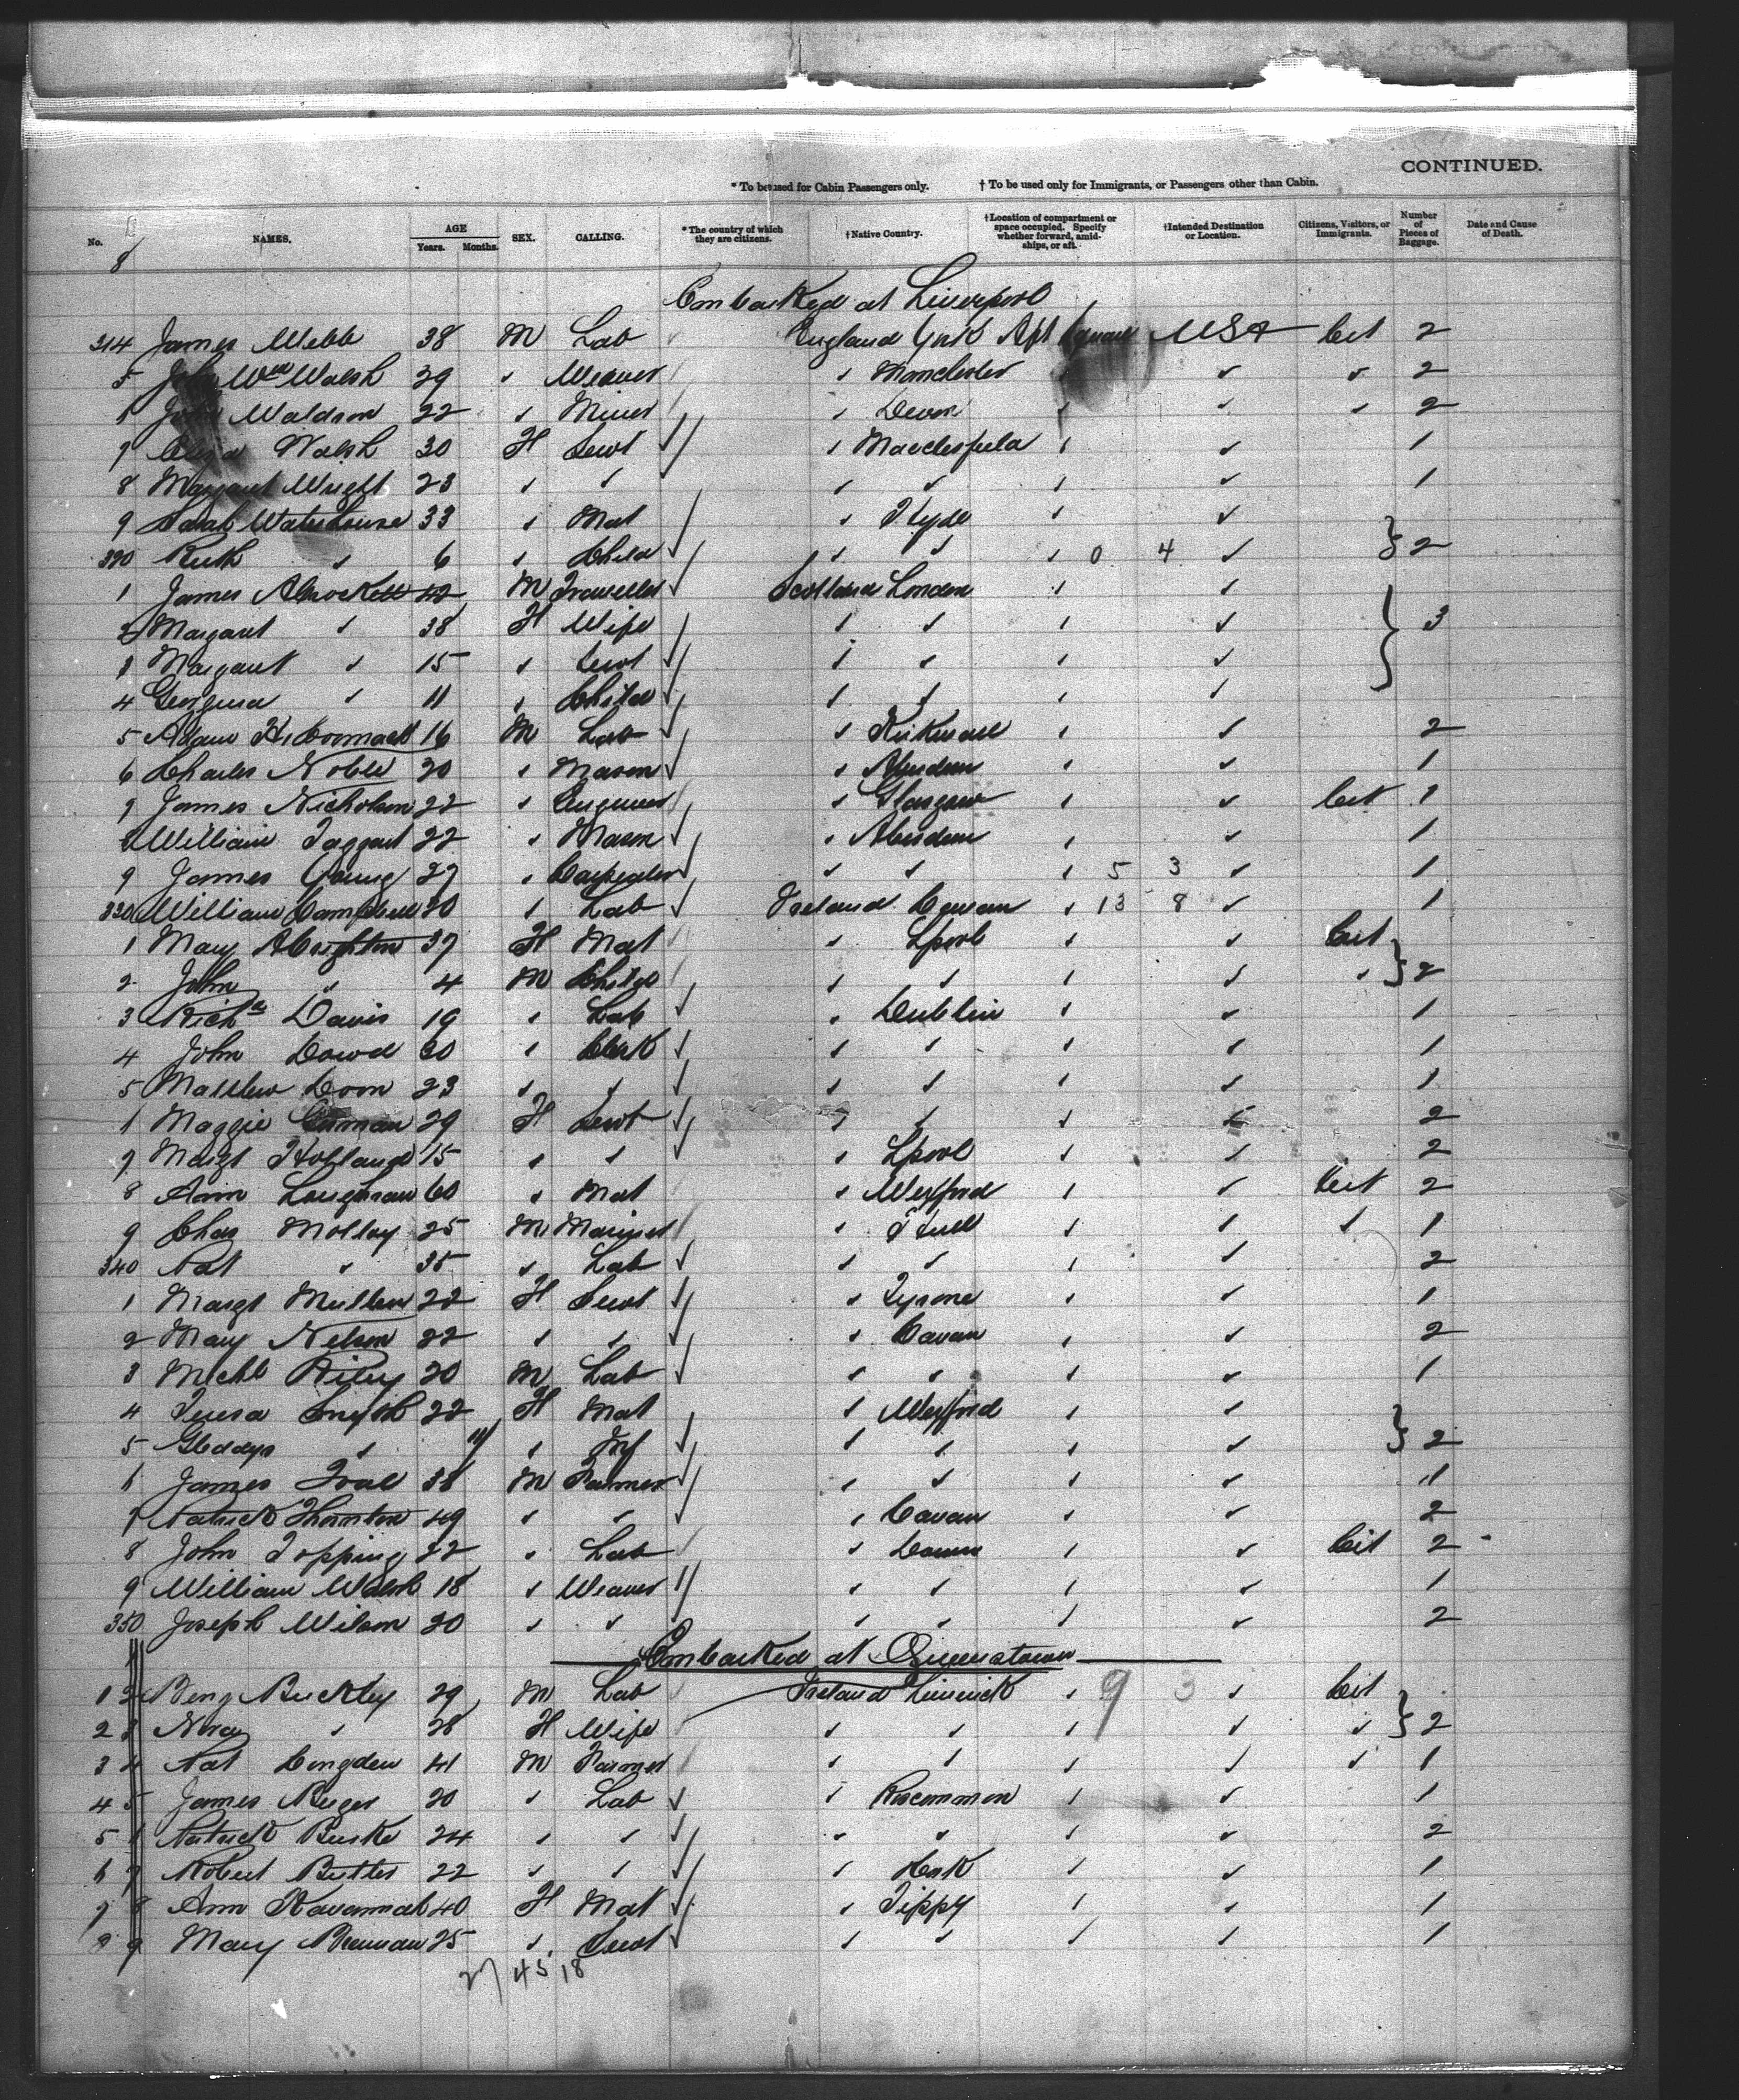 CONTINUED.
* To be used for Cabin Passengers only. † To be used only for Immigrants, or Passengers other than Cabin.
No. NAMES. AGE Years. Months. SEX. CALLING. * The country of which they are citizens. † Native Country. † Location of compartment or space occupied. Specify whether forward, amidships, or aft. † Intended Destination or Location. Citizens, Visitors, or Immigrants. Number of Pieces of Baggage. Date and Cause of Death.
8
Embarked at Liverpool
314 James Webb 38 M Lab England York Aft USA Cit 2
5 John Wm Walsh 29 " Weaver " Manchester " " 2
6 John Waldron 22 " Miner " Devon " " " 2
7 Walsh 30 F Servt " Macclesfield " " 1
8 Margaret Wright 23 " " " " " " 1
9 Sarah Waterhouse 33 " Mat " Hyde " "
320 Ruth " 6 " Child " " " 0 4 " } 2
1 James 42 M Traveller Scotland London " "
2 Margaret " 38 F Wife " " " " } 3
3 Margaret " 15 " Servt " " " "
4 Georgina " 11 " Child " " " "
5 Adam 16 M Lab " Kirkwall " " 2
6 Charles Noble 20 " Mason " Aberdeen " " 1
7 James Nicholson 22 " Engineer " Glasgow " " Cit 1
8 William Taggart 22 " Mason " Aberdeen " " 1
9 James Young 27 " Carpenter " " " 5 3 " 1
330 William Campbell 20 " Lab Ireland Cavan " 13 8 " 1
1 Mary 37 F Mat " Lpool " " Cit
2 John " 4 M Child " " " " " } 2
3 Richd Davis 19 " Lab " Dublin " " 1
4 John Dowd 20 " Clerk " " " " 1
5 Matthew Doon 23 " " " " " " 1
6 Maggie 29 F Servt " " " " 2
7 Margt Holland 15 " " " Lpool " " 2
8 Ann Loughran 60 " Mat " Wexford " " Cit 2
9 Chas Molloy 25 M Mariner " Hull " " " 1
340 Pat " 35 " Lab " " " " 2
1 Margt Mullen 22 F Servt " Tyrone " " 1
2 Mary Nelson 22 " " " Cavan " " 2
3 Michl Riley 20 M Lab " " " " 1
4 Teresa Smyth 22 F Mat " Wexford " "
5 Gladdys " 11 " Inf " " " " } 2
6 James 38 M Farmer " " " " 1
7 Patrick Thornton 49 " " " Cavan " " 2
8 John Topping 22 " Lab " Down " " Cit 2
9 William Walsh 18 " Weaver " " " " 1
350 Joseph Wilson 20 " " " " " " 2
Embarked at Queenstown
1 2 Benj Buckley 29 M Lab Ireland Limerick " 9 3 " Cit
2 3 Nora " 28 F Wife " " " " " } 2
3 4 Pat Congden 41 M Farmer " " " " " 1
4 5 James 20 " Lab " Roscommon " " 1
5 6 Patrick Burke 24 " " " " " " 2
6 7 Robert Butler 22 " " " Cork " " 1
7 8 Ann Kavannah 40 F Mat " Tippy " " 1
8 9 Mary Brennan 25 " Servt " " " " 1
27 45 18